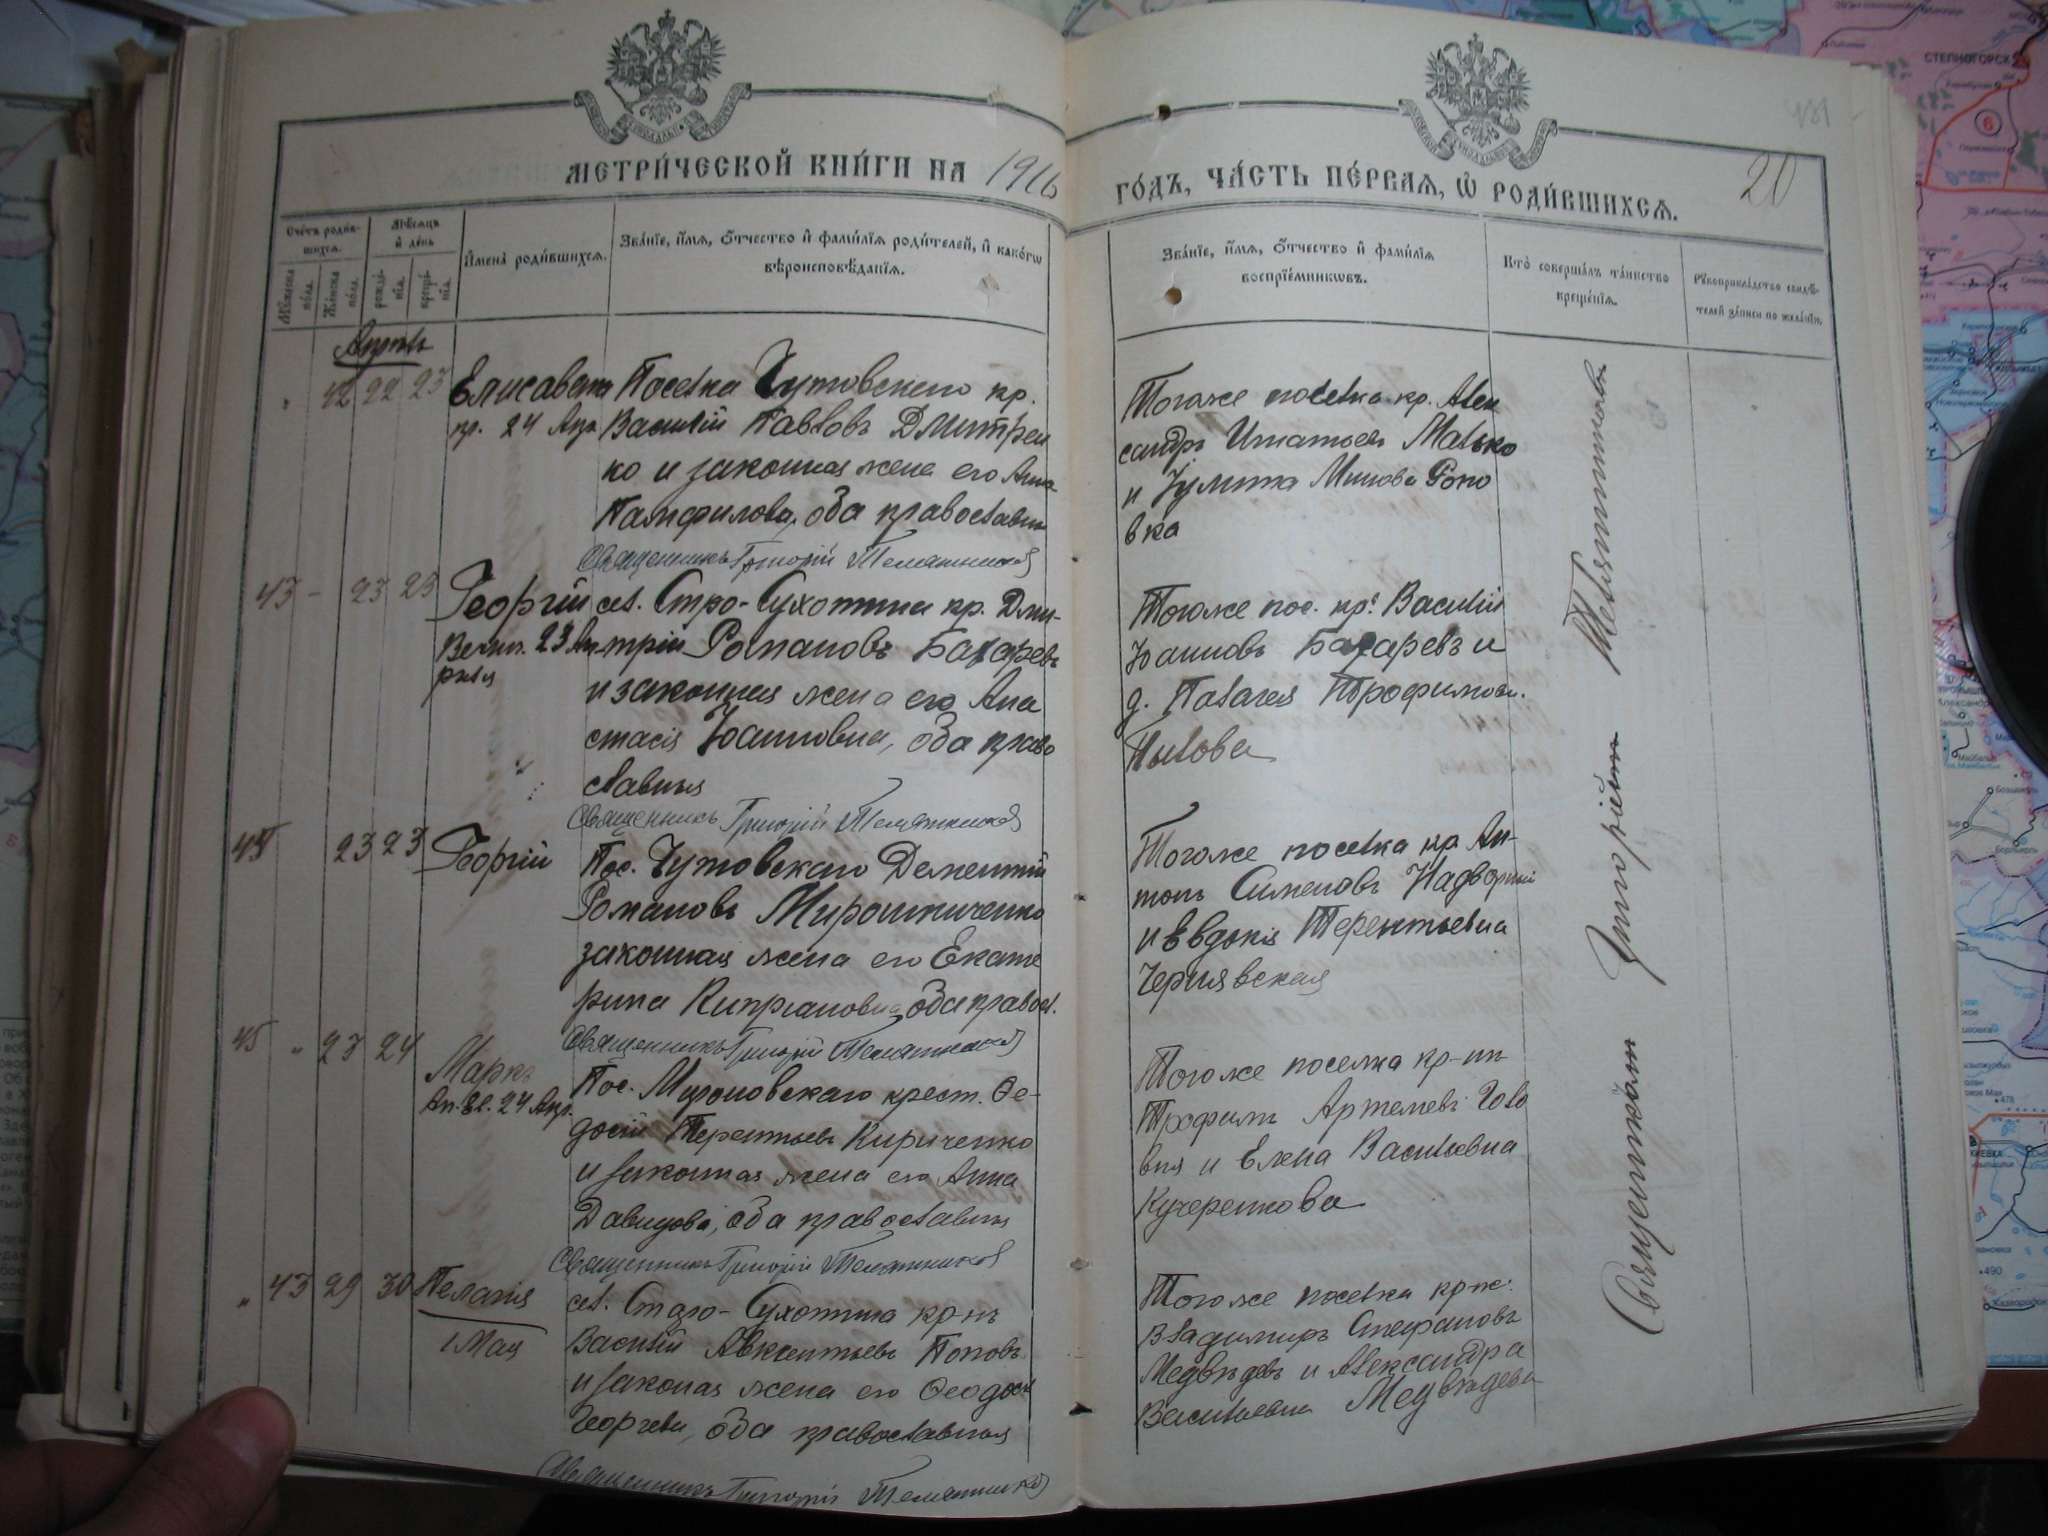 МЕТРИ́ЧЕСКОЙ КНИ́ГИ НА 1916
ГО́ДЪ, ЧА́СТЬ ПЕ́РВАЯ, Ѽ РОДИ́ВШИХСЯ.
20
Сче́тъ роди́в-
шихся.
Му́жеска
по́ла.
Же́нска
по́ла.
Мѣ́сяцъ
и҆ де́нь
рожде́-
нїя.
креще́-
нїя.
И҆мена̀ роди́вшихся.
Зва́нїе, и҆́мя, ѻ҆́тчество и҆ фами́лїя роди́телей, и҆ како́гѡ
вѣроисповѣ́данїя.
Зва́нїе, и҆́мя, ѻ҆́тчество и҆ фами́лїя
воспрїе́мниковъ.
Кто̀ соверша́лъ та́инство
креще́нїя.
Рꙋкоприкла́дство свидѣ́-
телей за́писи по жела́нїю.
Апрѣль
" 42 22 23 Елисавета
пр. 24 Апр.
Поселка Чутовского кр.
Василій Павловъ Дмитрен
ко и законная жена его Анна
Памфилова, оба православны
Священникъ Григорій Телятников
Тогоже поселка кр. Алек
сандръ Игнатьевъ Малько
и Іулитта Минова Попо
вка
43 - 23 23 Георгій
Велик. 23 Ап
рѣля
сел. Старо-Сухотина кр. Дми-
трій Романовъ Бахаревъ
и законная жена его Ана
стасія Іоанновна, оба право
славныя
Священникъ Григорій Телятников
Тогоже пос. кр. Василій
Іоанновъ Бахаревъ и
д. Палагея Трофимов.
Пылова
44 23 23 Георгій
Пос. Чутовскаго Дементій
Романовъ Мирошниченко
законная жена его Екате
рина Кипріановна, оба правосл.
Священникъ Григорій Телятников
Тогоже поселка кр Ан-
тонъ Симеоновъ Надворный
и Евдокія Терентьевна
Чернявская
45 " 23 24 Маркъ
Ап. Ев. 24 Апр.
Пос. крест. Ѳе-
досій Терентьевъ Кириченко
и законная жена его Анна
Давидова, оба православны
Священникъ Григорій Телятников
Тогоже поселка кр-нъ
Трофимъ Артемевъ Голо
вня и Елена Васильевна
Кучеренкова
" 43 29 30 Пелагія
1 Мая
сел. Старо-Сухотина кр-нъ
Василій Авксентьевъ Поповъ
и законая жена его Ѳеодосія
Георгіева, оба православныя
Священникъ Григорій Телятников
Тогоже поселка кр-нъ:
Владимиръ Стефановъ
Медвѣдевъ и Александра
Васильевна Медвѣдева
Священникъ Григорій Телятниковъ
СТЕПНОГОРСК